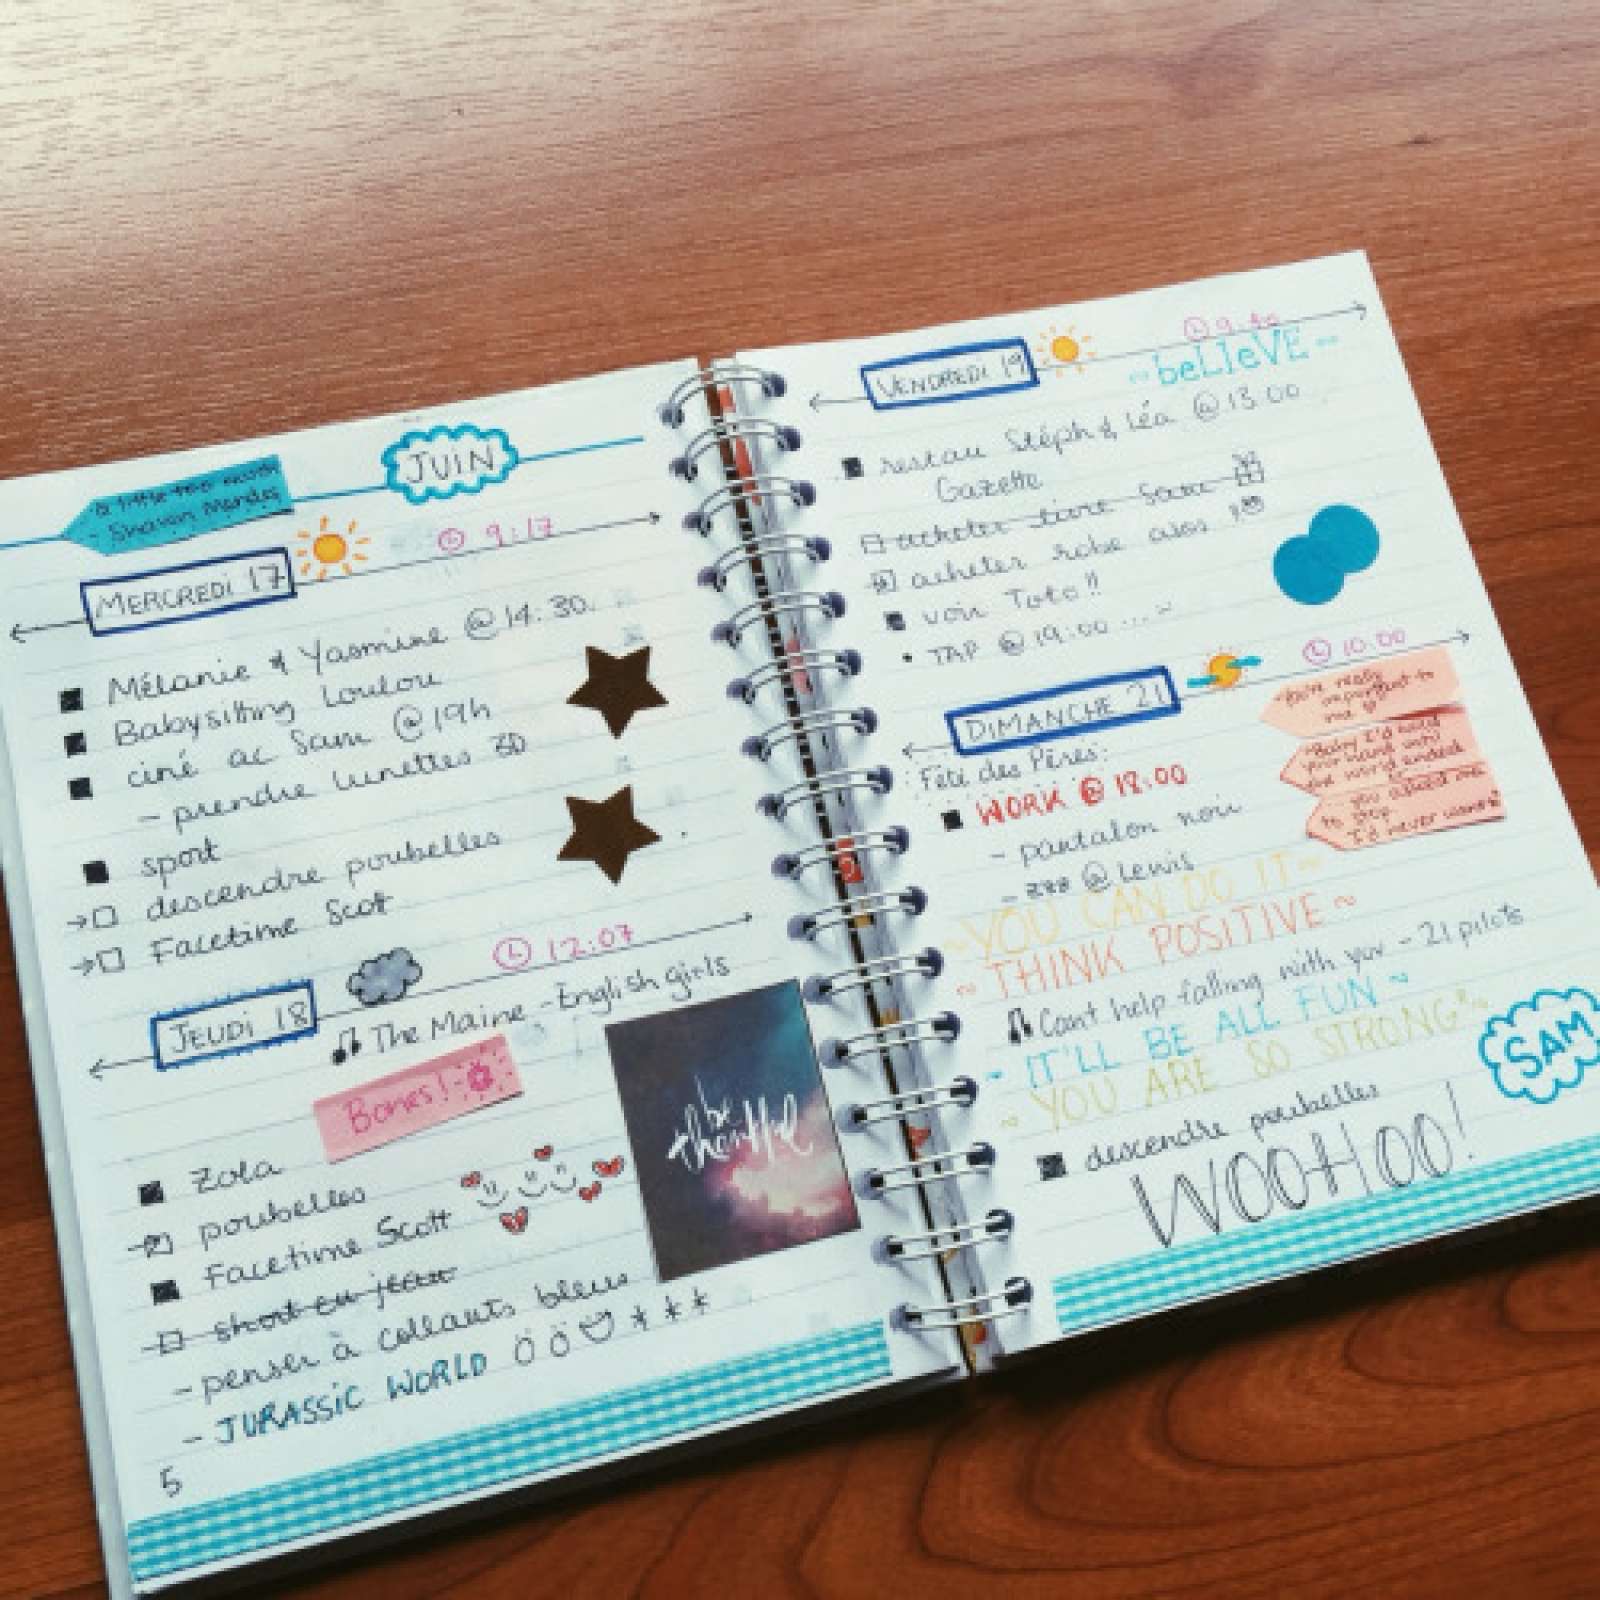 JUIN
a little too much
- Shawn Mendes
MERCREDI 17
9:17
Mélanie & Yasmine @ 14:30
Babysitting Loulou
ciné ac Sam @ 19h
- prendre lunettes 3D
sport
→ descendre poubelles
→ Facetime Scot
JEUDI 18
12:07
The Maine - English girls
Bones!
be thankful
Zola
poubelles
Facetime Scott
short en jean
- penser à collants bleus
- JURASSIC WORLD
5
VENDREDI 19
~ beLIeVE ~
restau Stéph & Léa @ 13:00
Gazette
acheter livre
acheter robe asos
voir Toto!!
• TAP @ 19:00 ...~
DIMANCHE 21
10:00
"You're really
important to
me
"Baby I'd hold
your hand until
the world ended
you asked me
to stop
I'd never wanna"
Fête des Pères:
WORK @ 18:00
- pantalon noir
- zzz @ Lewis
~ YOU CAN DO IT ~
~ THINK POSITIVE ~
Can't help falling with you - 21 pilots
- IT'LL BE ALL FUN ~
~ YOU ARE SO STRONG ~
SAM
descendre poubelles
WOOHOO!